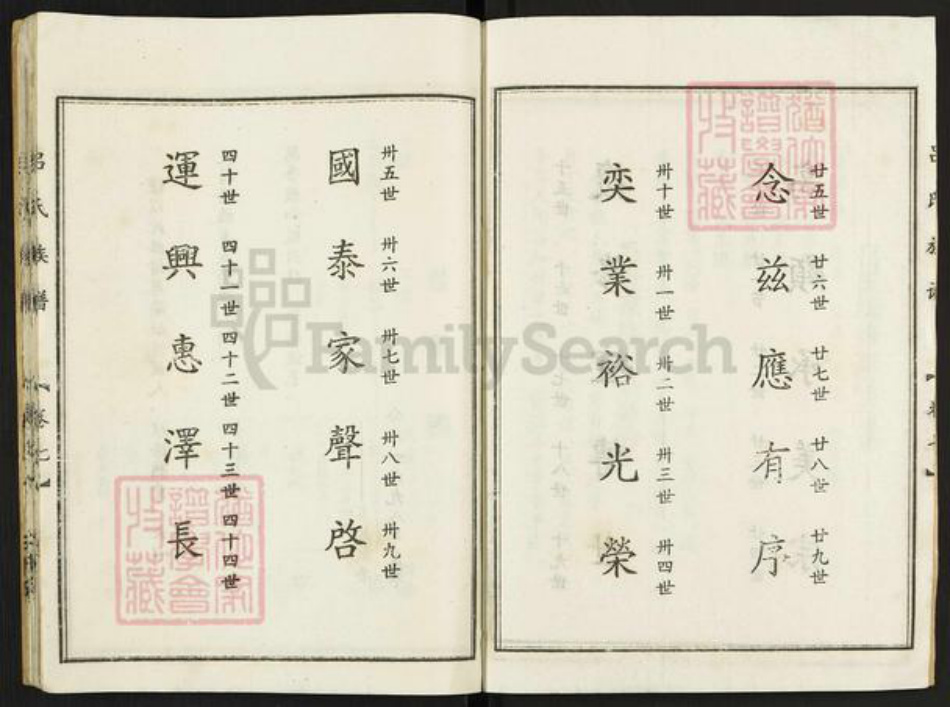 廿五世 廿六世 廿七世 廿八世 廿九世
念兹應有序
卅十世 卅一世 卅二世 卅三世 卅四世
奕業裕光榮
卅五世 卅六世 卅七世 卅八世 卅九世
國泰家聲啓
四十世 四十一世 四十二世 四十三世 四十四世
運興惠澤長
呂氏族譜
【卷七】
FamilySearch